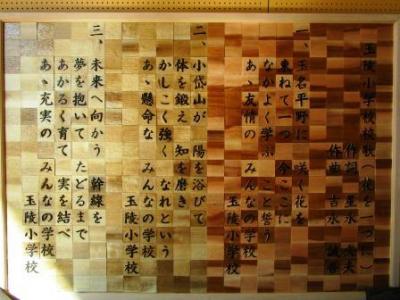 玉陵小学校校歌(花を一つに)
作詞
作曲 吉永
一、玉名平野に 咲く花を
束ねて一つ 今ここに
なかよく学ぶ こと誓う
あゝ友情の みんなの学校
玉陵小学校
二、小岱山が 陽を浴びて
体を鍛え 知を磨き
かしこく強く なれという
あゝ懸命な みんなの学校
玉陵小学校
三、未来へ向かう 幹線を
夢を抱いて たどるまで
あかるく育て 実を結べ
あゝ充実の みんなの学校
玉陵小学校